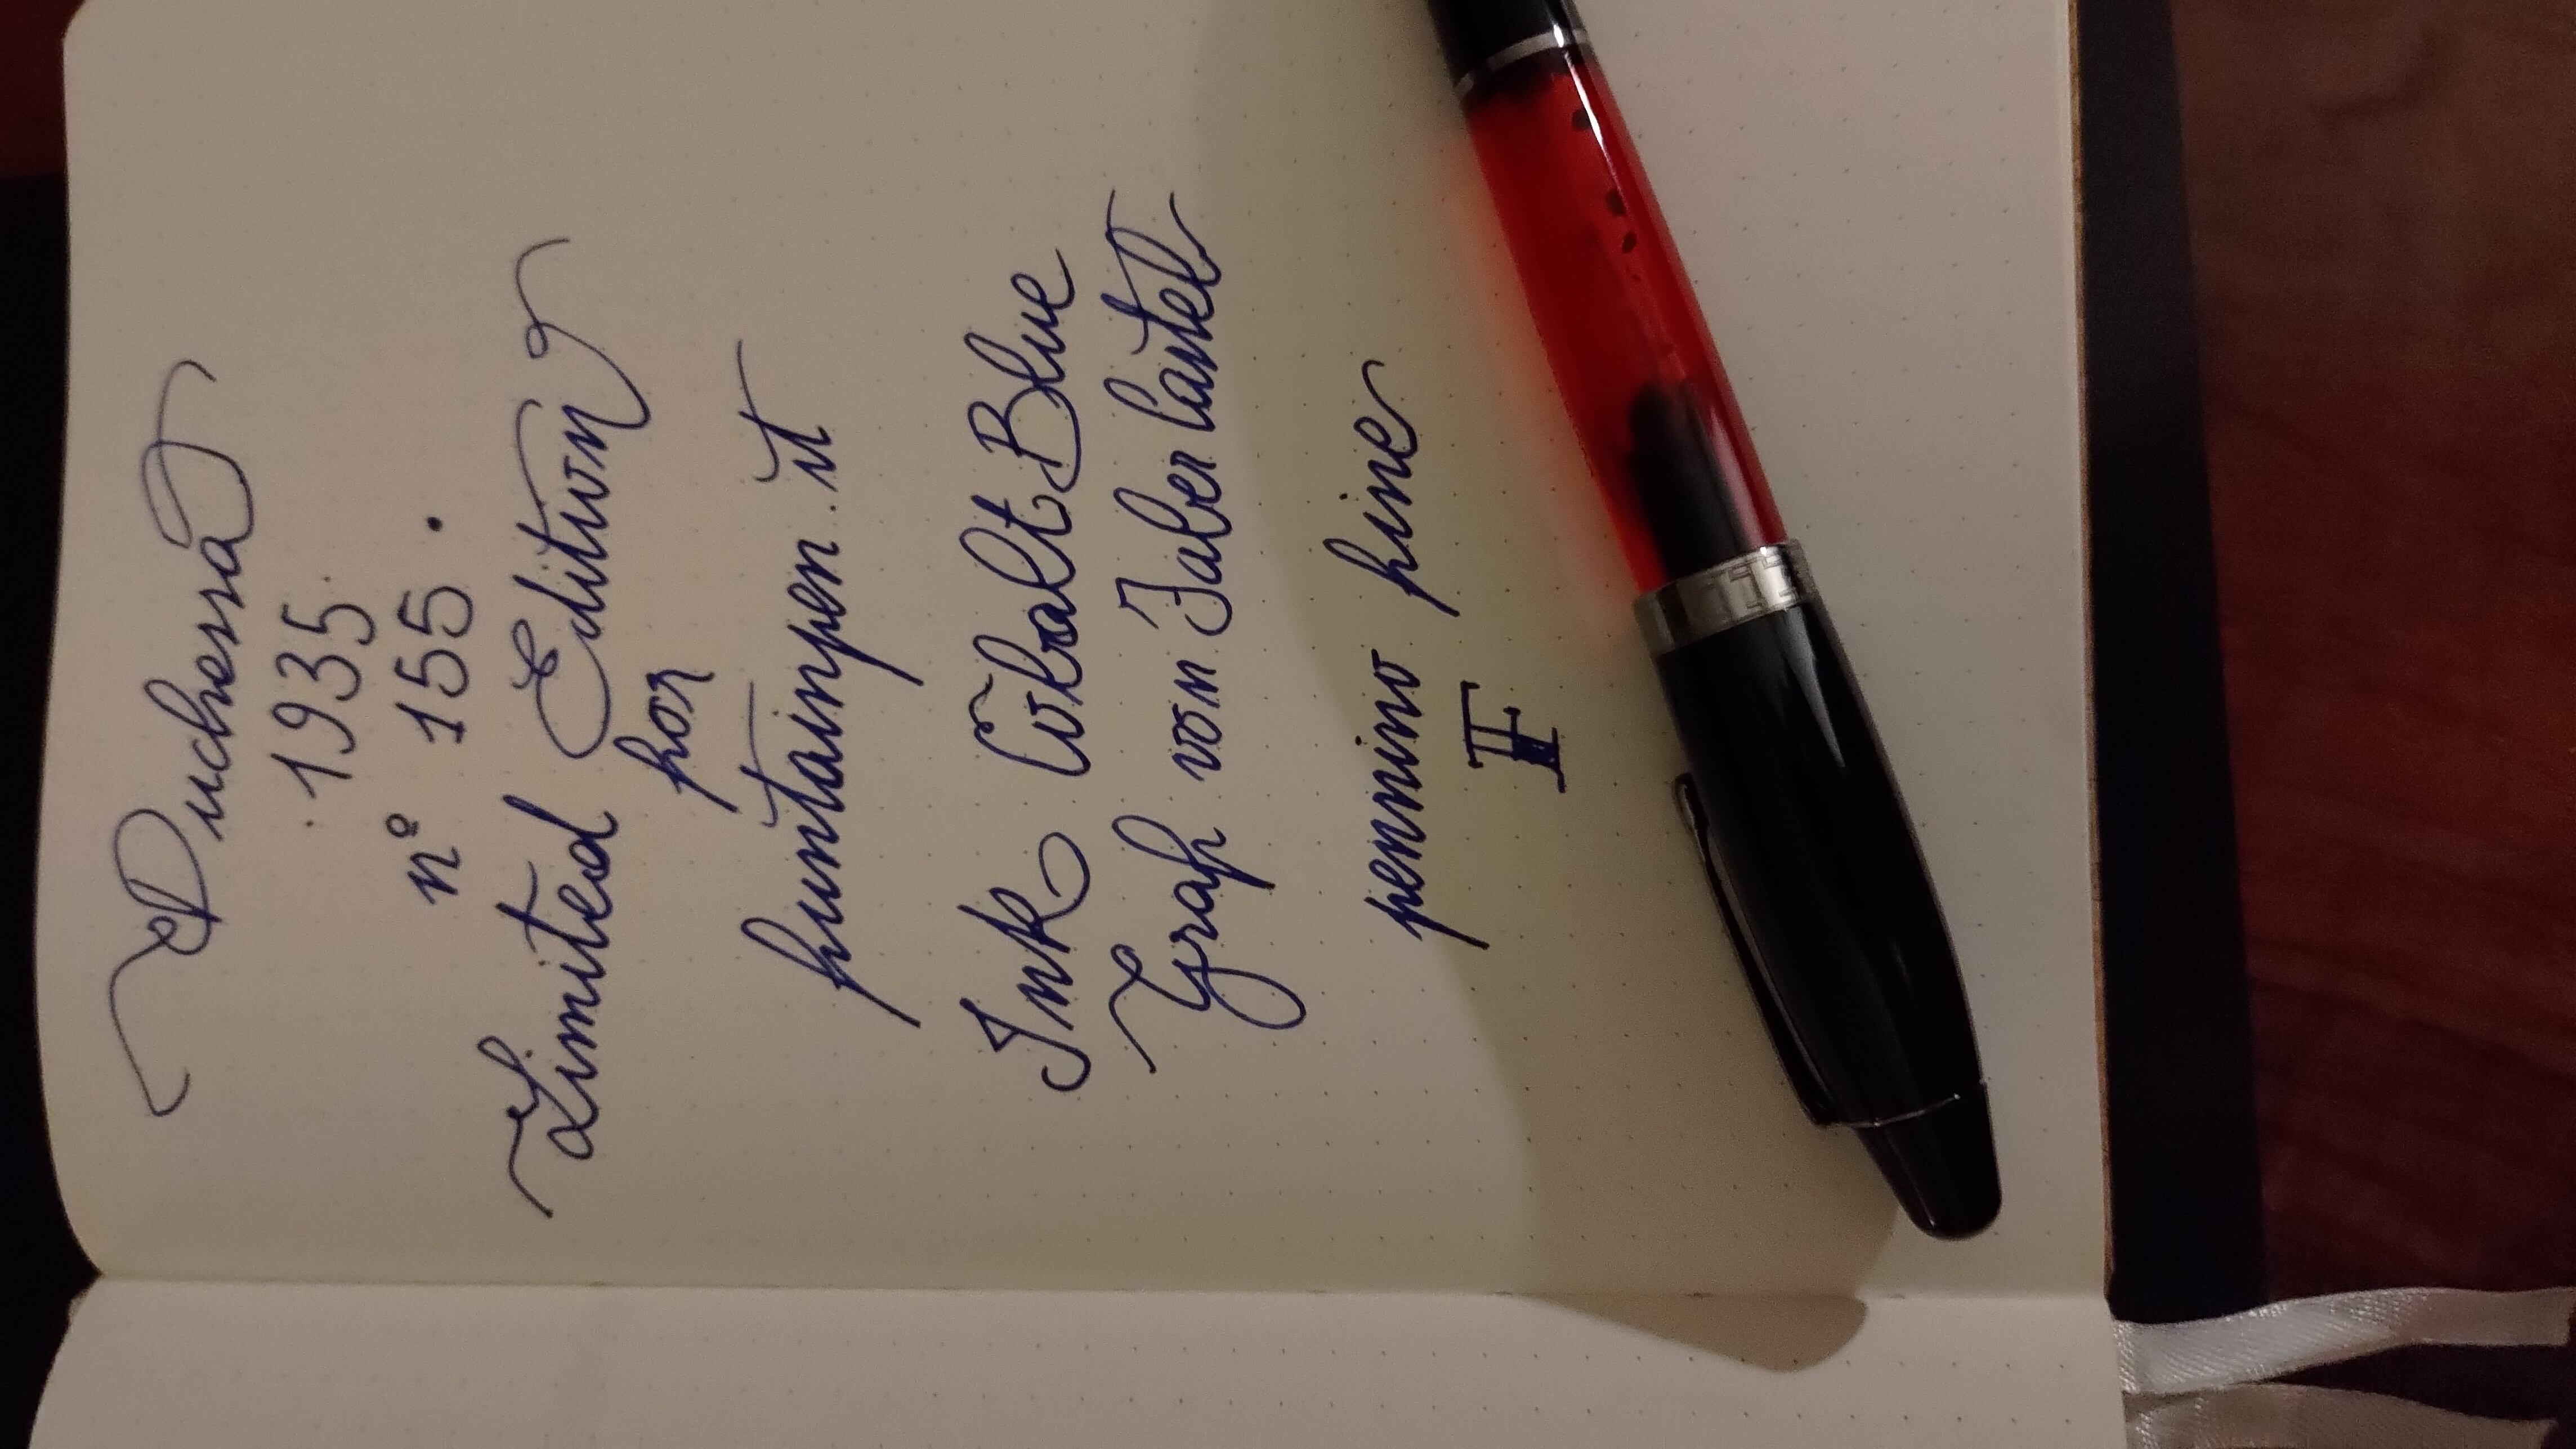 Duchessa
.1935.
n° 155.
Limited Edition
for
funtainpen.it
Ink Cobalt Blue
Graf von Faber Castel
pennino fine
F